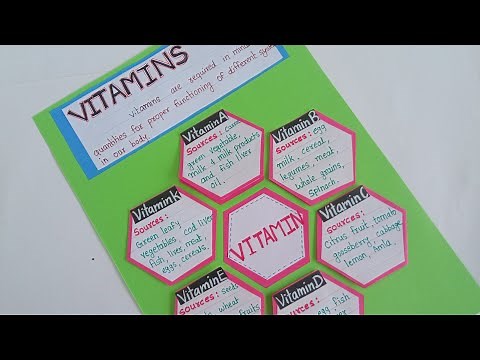 VITAMINS
vitamins are required in
quantities for proper functioning of different
in our body.
Vitamin A
Sources :
green vegetable,
milk & milk products
and fish liver
oil.
Vitamin B
Sources : egg
milk, cereal,
legumes, meat,
whole grains,
spinach.
Vitamin K
Sources :
Green leafy
vegetables, cod liver
fish, liver, meat,
eggs, cereals.
VITAMIN
Vitamin C
Sources :
Citrus fruit, tomato
gooseberry, cabbage
lemon, Amla.
Vitamin E
Sources : seeds
wheat
fruits
Vitamin D
Sources :
egg, fish